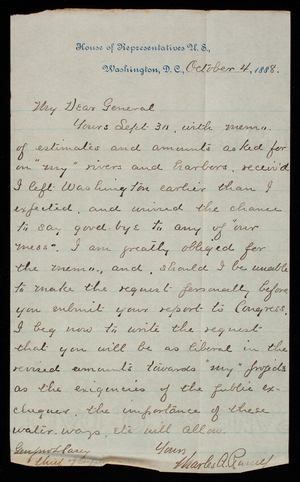 House of Representatives U. S.,
Washington, D. C., October 4, 1888.
My Dear General
Yours Sept 30, with memo.
of estimates and amounts asked for
on "my" rivers and harbors, receiv'd
I left Washington earlier than I
expected, and missed the chance
to say good-bye to any of "our
mess". I am greatly obliged for
the memo., and, should I be unable
to make the request personally before
you submit your report to Congress,
I beg now to write the request
that you will be as liberal in the
revised amounts towards "my" projects
as the exigencies of the public ex-
chequer, the importance of these
water-ways, etc will allow.
Yours
Charles A.
Casey